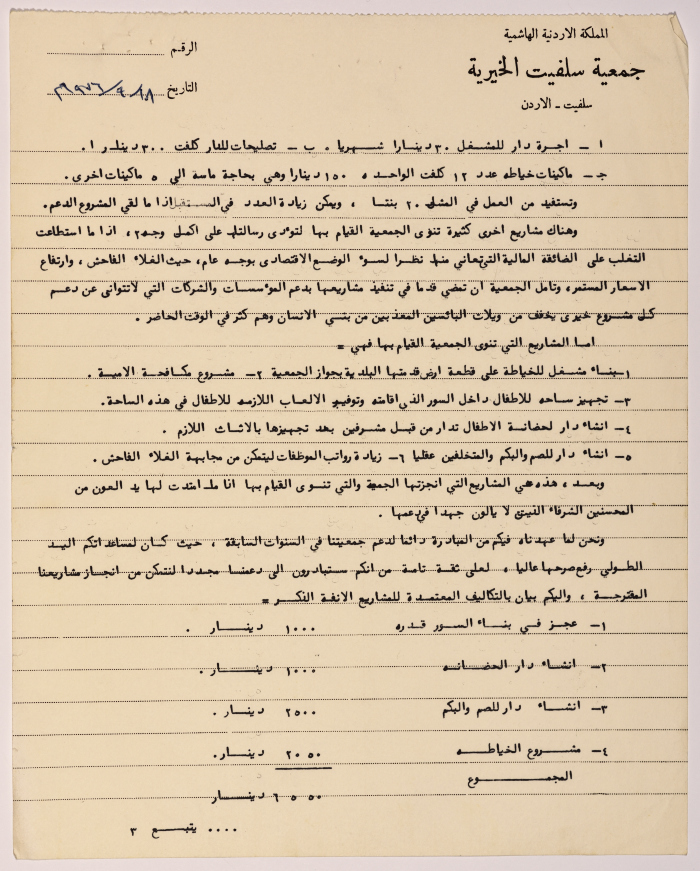 المملكة الاردنية الهاشمية
جمعية سلفيت الخيرية
سلفيت - الاردن
الرقم
التاريخ
ا - اجرة دار للمشغل ٣٠ دينارا شهريا . ب - تصليحات للدار كلفت ٣٠٠ دينار ا .
جـ - ماكينات خياطه عدد ١٢ كلفت الواحده ١٥٠ دينارا وهي بحاجة ماسة الى ٥ ماكينات اخرى .
وتستفيد من العمل في المشغل ٢٠ بنتا ، ويمكن زيادة العدد في المستقبل اذا ما لقي المشروع الدعم .
وهناك مشاريع اخرى كثيرة تنوى الجمعية القيام بها لتؤدى رسالتها على اكمل وجه ، اذا ما استطاعت
التغلب على الضائقة المالية التي تعاني منها نظرا لسوء الوضع الاقتصادى بوجه عام ، حيث الغلاء الفاحش ، وارتفاع
الاسعار المستمر ، وتامل الجمعية ان تمضي قدما في تنفيذ مشاريعها بدعم المؤسسات والشركات التي لا تتوانى عن دعم
كل مشروع خيرى يخفف من ويلات البائسين المعذبين من بني الانسان وهم كثر في الوقت الحاضر .
اما المشاريع التي تنوى الجمعية القيام بها فهي =
١- بناء مشغل للخياطة على قطعة ارض قدمتها البلدية بجواز الجمعية ٢- مشروع مكافحة الامية .
٣- تجهيز ساحه للاطفال داخل السور الذى اقامته وتوفير الالعاب اللازمه للاطفال في هذه الساحة .
٤- انشاء دار لحضانة الاطفال تدار من قبل مشرفين بعد تجهيزها بالاثاث اللازم .
٥- انشاء دار للصم والبكم والمتخلفين عقليا ٦- زيادة رواتب الموظفات ليتمكن من مجابهة الغلاء الفاحش .
وبعد ، هذه هي المشاريع التي انجزتها الجمعية والتي تنوى القيام بها اذا ما امتدت لها يد العون من
المحسنين الشرفاء الذين لا يالون جهدا في دعمها .
ونحن لما عهدناه فيكم من المبادرة دائما لدعم جمعيتنا في السنوات السابقة ، حيث كان لمساعداتكم اليد
الطولى رفع صرحها عاليا ، لعلى ثقة تامة من انكم ستبادرون الى دعمنا مجددا لنتمكن من انجاز مشاريعنا
المقترحة ، واليكم بيان بالتكاليف المعتمدة للمشاريع الانفة الذكر =
١- عجز في بناء السور قدره ١٠٠٠ دينار .
٢- انشاء دار الحضانه ١٠٠٠ دينار .
٣- انشاء دار للصم والبكم ٢٥٠٠ دينار .
٤- مشروع الخياطه ٢٠٥٠ دينار .
المجموع
٦٥٥٠ دينار
.... يتبع ٣